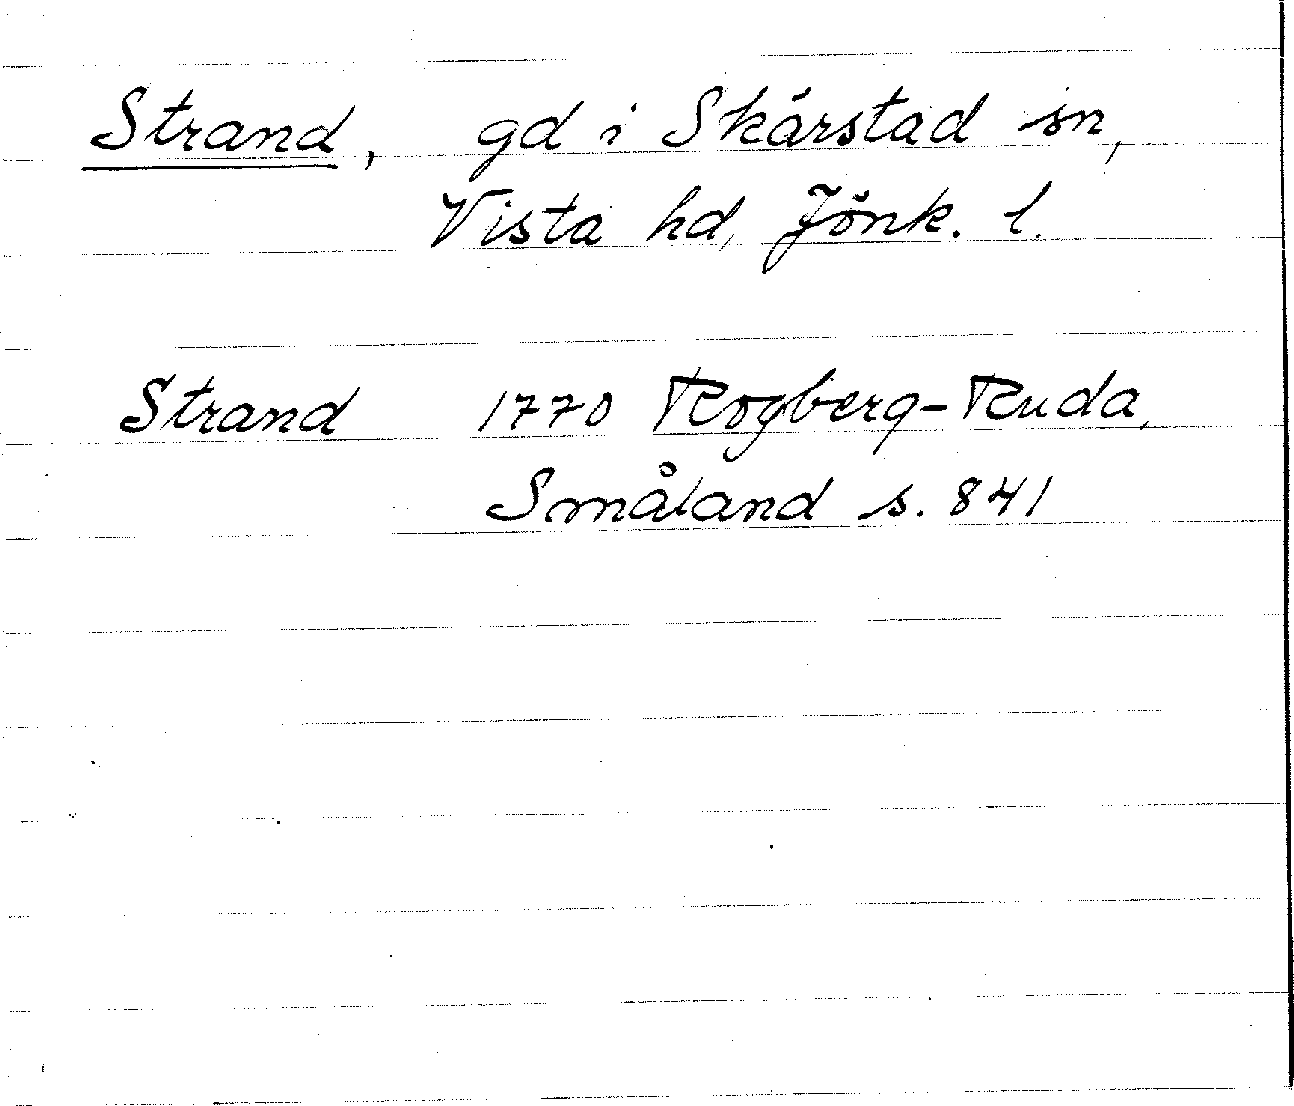 Strand, gd i Skärstad sn,
Vista hd, Jönk. l.
Strand 1770 Rogberg-Ruda,
Småland s. 841